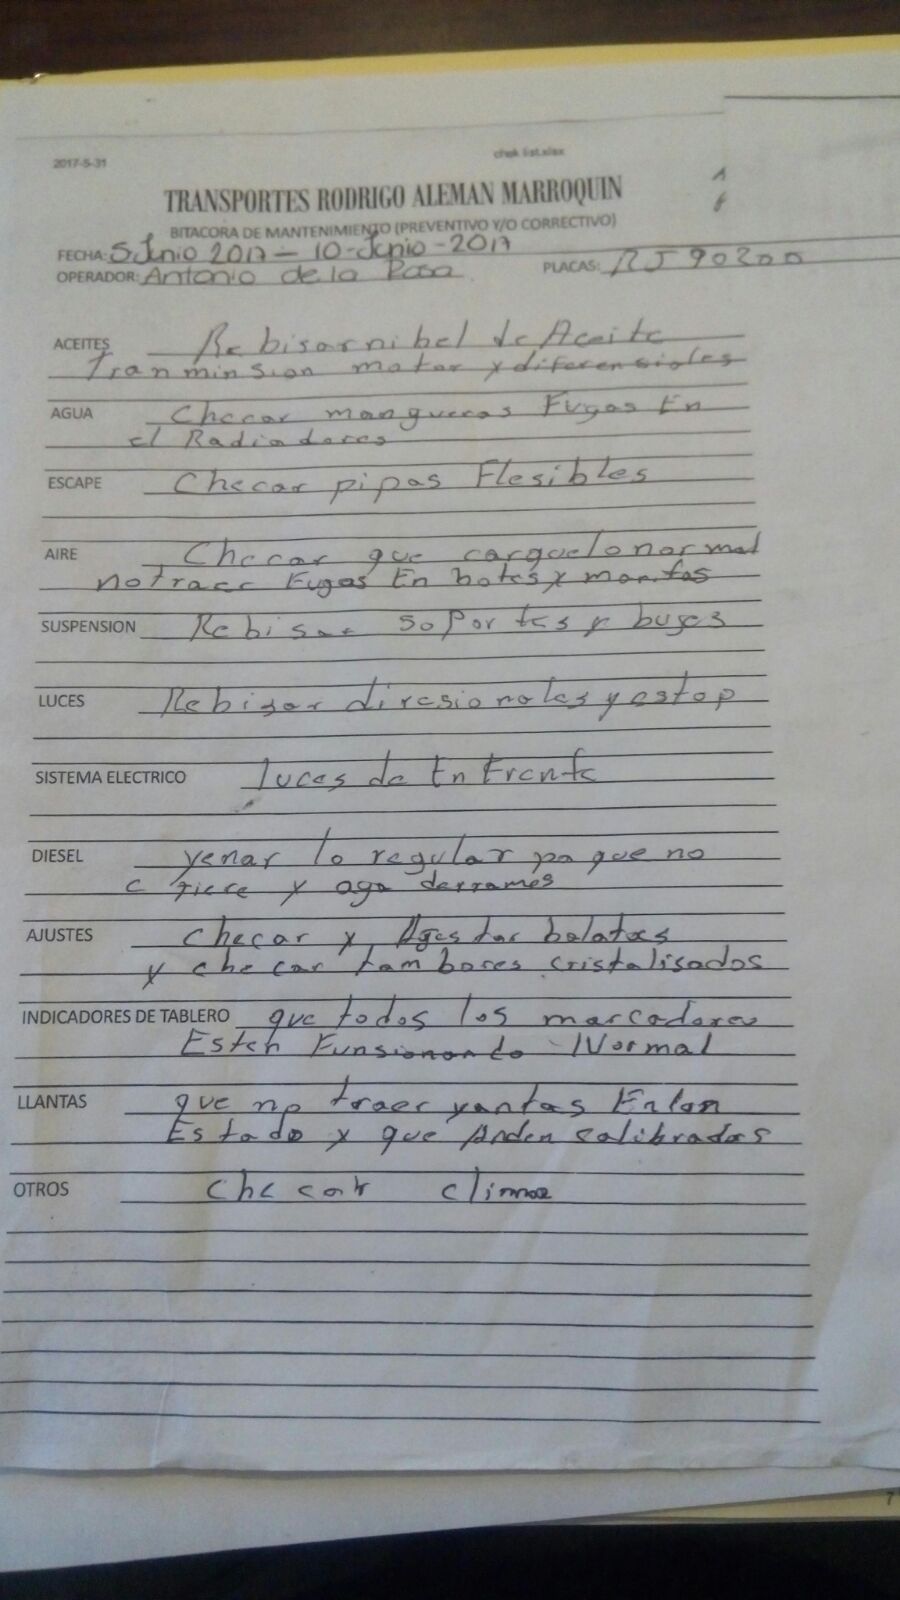 2017-5-31
chek list.xlsx
TRANSPORTES RODRIGO ALEMAN MARROQUIN
BITACORA DE MANTENIMIENTO (PREVENTIVO Y/O CORRECTIVO)
FECHA: 5 Junio 2017 - 10-Junio-2017
OPERADOR: Antonio de la Rosa PLACAS:
ACEITES Rebisar nibel de Aceite
Tranminsion motor y diferensiales
AGUA Checar mangueras Fugas En
el Radiadores
ESCAPE Checar pipas Flesibles
AIRE Checar que carguelo normal
no traer Fugas En botes y manitas
SUSPENSION Rebisar soportes y bujes
LUCES Rebisar diresionales y estop
SISTEMA ELECTRICO luces de EnFrente
DIESEL yenar lo regular pa que no
c tiere y aga derrames
AJUSTES checar y Ajestar balatas
y checar tambores cristalisados
INDICADORES DE TABLERO que todos los marcadores
Esten Funsionando Normal
LLANTAS que no traer yantas En
Estado y que Anden calibradas
OTROS checar clima
7